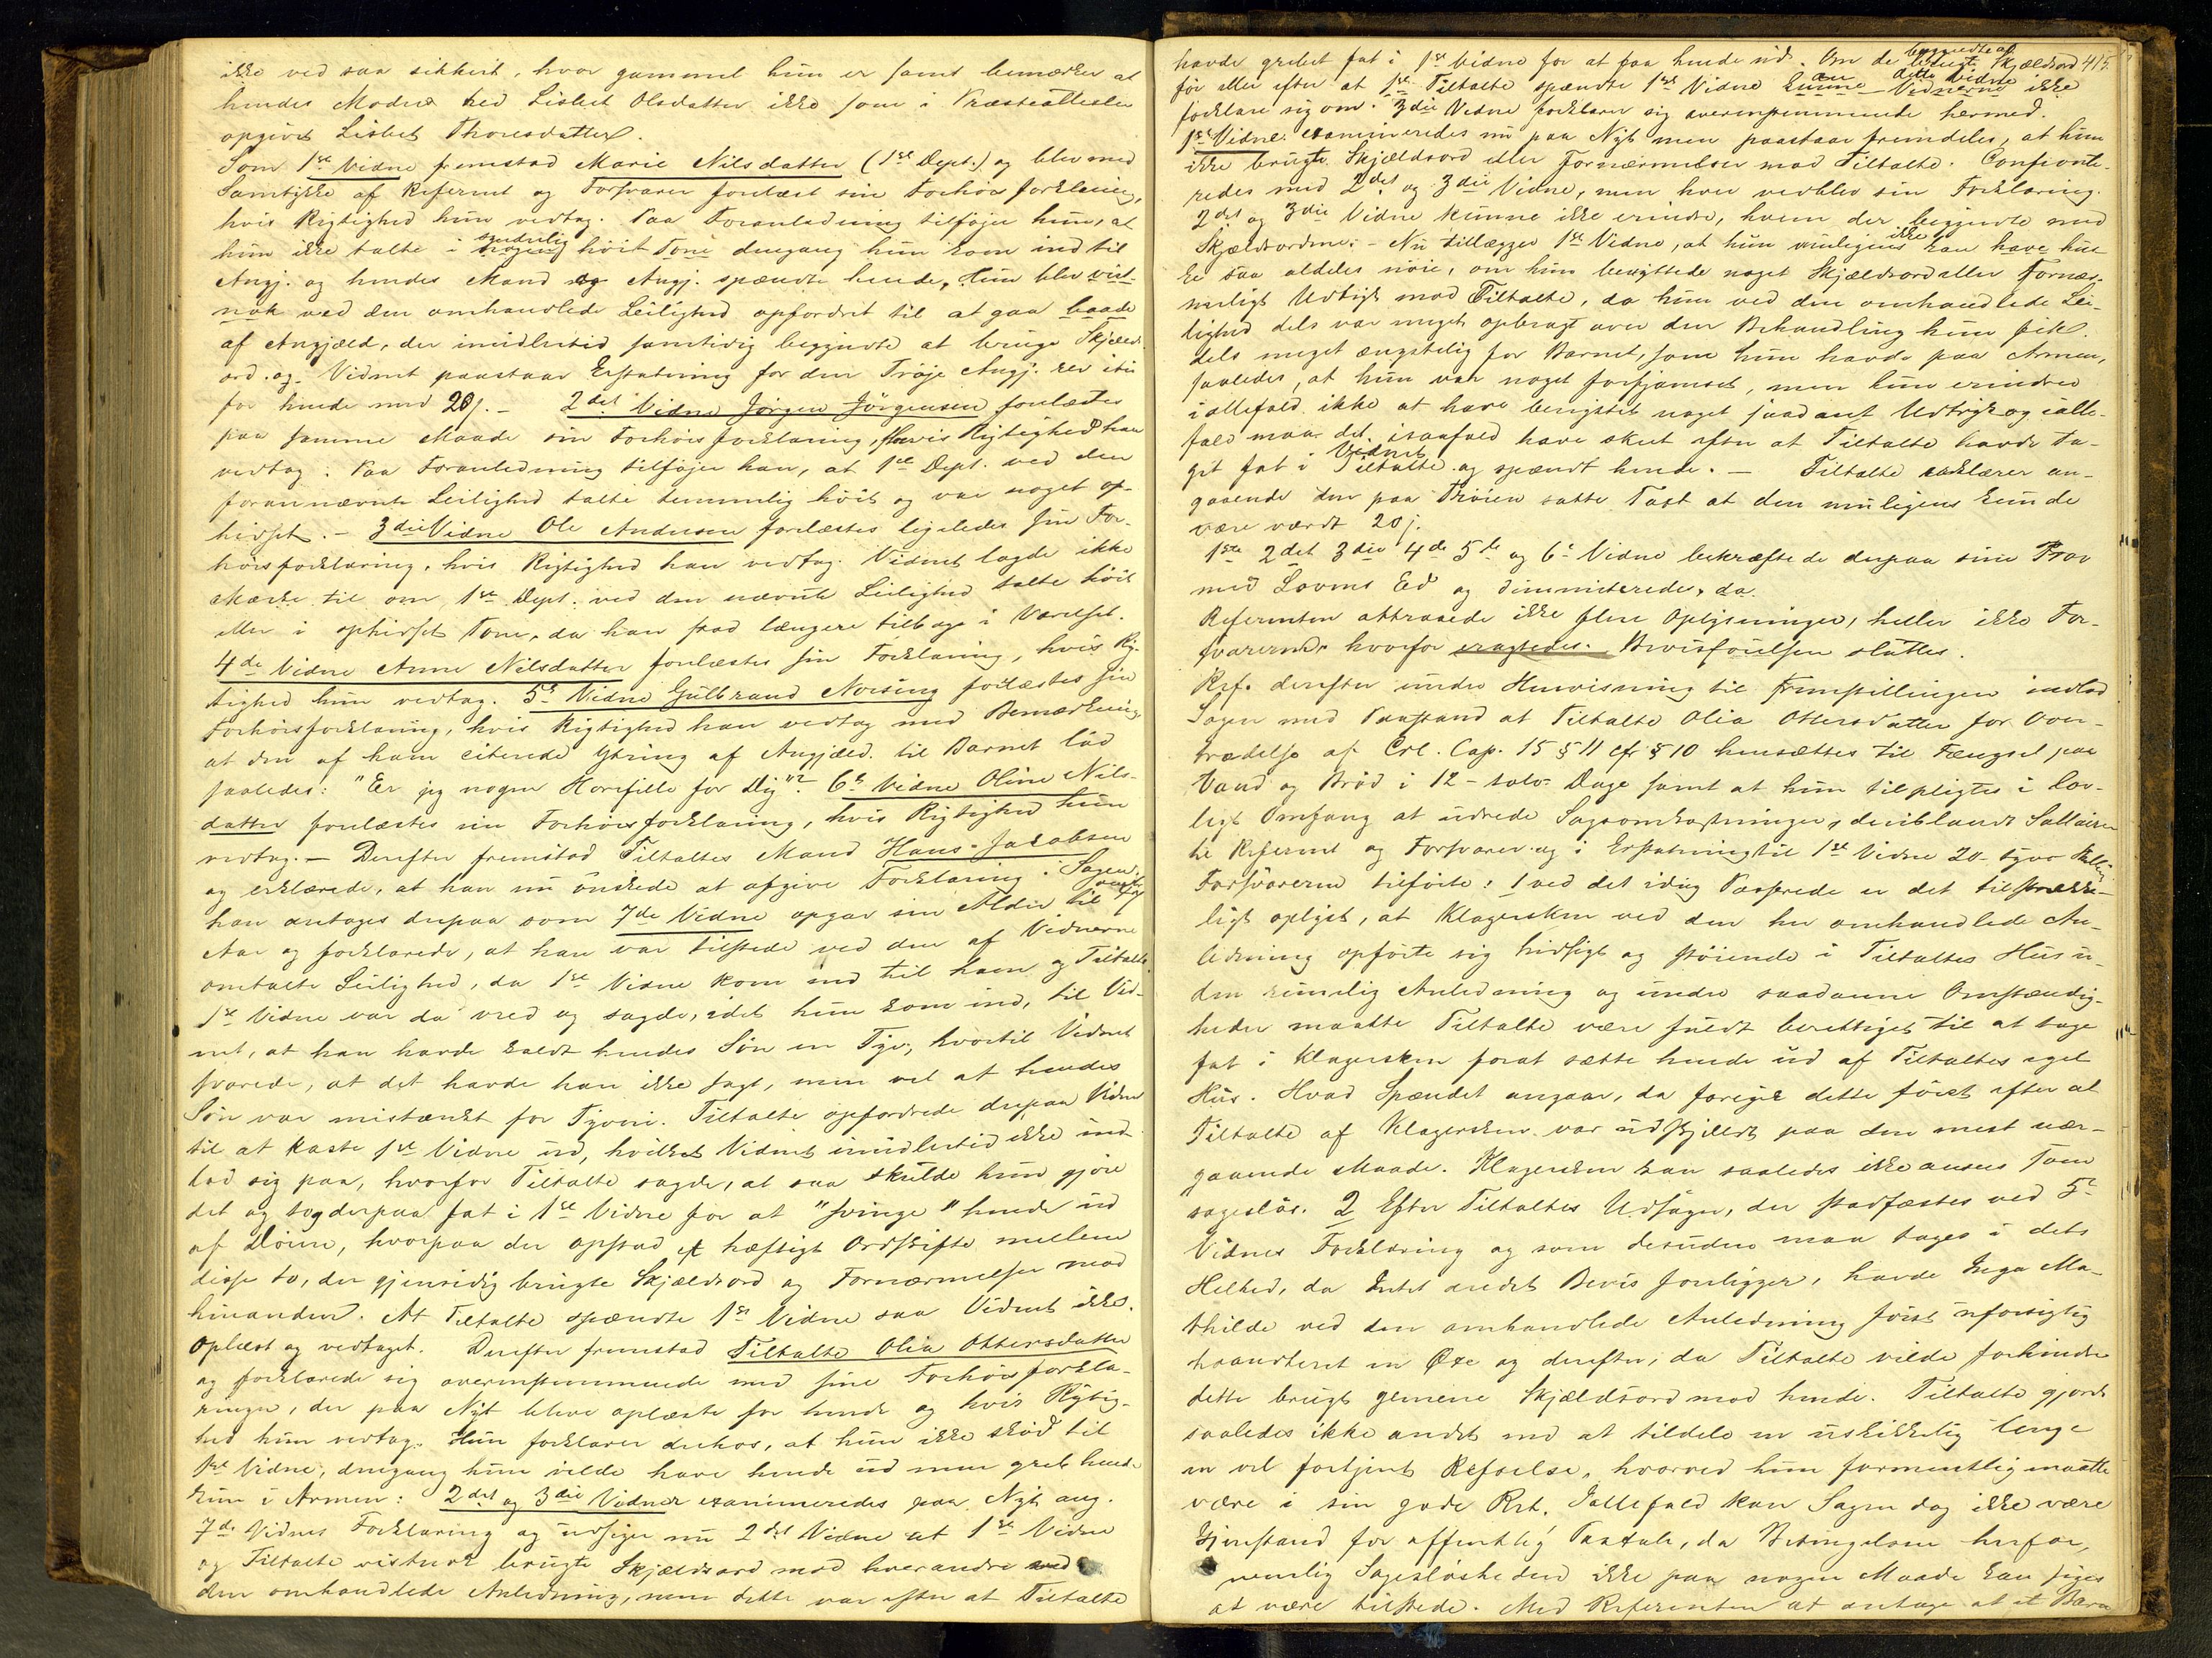 ikke ved saa sikkert, hvor gammel hun er samt bemærker at
hendes Moder hed Lisbet Olsdatter ikke som i Præsteattesten
opgivet Lisbet Thoresdatter.
Som 1ste Vidne fremstod Marie Nilsdatter (1ste Dept.) og blev med
Samtykke af Referent og Forsvarer forelæst sin Forhørsforklaring,
hvis Rigtighed hun vedtog. Paa Foranledning tilføjer hun, at
hun ikke talte i nogen synderlig høit Tone dengang hun kom ind til
Angj. og hendes Mand og Angj. spændte hende, Hun blev vist-
nok ved den omhandlede Leilighed opfordret til at gaa baade
af Angjæld., der imidlertid samtidig begyndte at bruge Skjælds-
ord og Vidnet paastaar Erstatning for den Trøje Angj. rev itu
for hende med 20 s. - 2det Vidne Jørgen Jörgensen forelæstes
paa samme Maade sin Forhørsforklaring, hvis Rigtighed han
vedtog. Paa Foranledning tilføjer han, at 1ste Dept. ved den
forannævnte Leilighed talte temmelig høit og var noget op-
hidset. - 3die Vidne Ole Andersen forelæstes ligeledes sin For-
hørsforklaring, hvis Rigtighed han vedtog. Vidnet lagde ikke
Mærke til om 1ste Dept. ved den nævnte Leilighed talte höit
eller i ophidset Tone, da han stod længere tilbage i Værelset.
4de Vidne Anne Nilsdatter forelæstes sin Forklaring, hvis Rig-
tighed hun vedtog. 5te Vidne Gulbrand Norsing forelæstes sin
Forhørsforklaring, hvis Rigtighed han vedtog med Bemærkning,
at den af ham citerede Ytring af Angjæld. til Barnet lød
saaledes: "Er jeg nogen Horefille for Dig"? 6te Vidne Oline Nils-
datter forelæstes sin Forhørsforklaring, hvis Rigtighed hun
vedtog. - Derefter fremstod Tiltaltes Mand Hans Jacobsen
og erklærede, at han nu ønskede at afgive Forklaring i Sagen.
han antoges derpaa som 7de Vidne opgav sin Alder til
Aar og forklarede, at han var tilstede ved den af Vidnerne
omtalte Leilighed, da 1ste Vidne kom ind til ham og Tiltalte.
1ste Vidne var da vred og sagde, idet hun kom ind, til Vid-
net, at han havde kaldt hendes Søn en Tyv, hvortil Vidnet
svarede, at det havde han ikke sagt, men vel at hendes
Søn var mistænkt for Tyveri. Tiltalte opfordrede derpaa Vidnet
til at kaste 1ste Vidne ud, hvilket Vidnet imidlertid ikke ind-
lod sig paa, hvorfor Tiltalte sagde, at saa skulde hun gjøre
det og tog derpaa fat i 1ste Vidne for at "svinge" hende ud
af Døren, hvorpaa der opstod et hæftigt Ordskifte mellem
disse to, der gjensidig brugte Skjældsord og Fornærmelser mod
hinanden. At Tiltalte spændte 1ste Vidne saa Vidnet ikke.
Oplæst og vedtaget. Derefter fremstod Tiltalte Olia Ottersdatter
og forklarede sig overensstemmende med sine Forhørsforkla-
ringer, der paa Nyt bleve oplæste for hende og hvis Rigtig-
hed hun vedtog. Hun forklarer derhos, at hun ikke skød til
1ste Vidne, dengang hun vilde have hende ud men greb hende
kun i Armen: 2det og 3die Vidner examineredes paa Nyt ang.
7de Vidnes Forklaring og udsiger nu 2det Vidne at 1ste Vidne
og Tiltalte vistnok brugte Skjældsord mod hverandre ved
den omhandlede Anledning, men dette var efter at Tiltalte
415.
havde grebet fat i 1ste Vidne for at faa hende ud. Om de begyndte at brugt Skjældsord
før eller efter at 1ste Tiltalte spændte 1ste Vidne kunne kan Vidnerne dette Vidne ikke
forklare sig om. 3die Vidne forklarer sig overensstemmende hermed.
1ste Vidne examineredes nu paa Nyt men paastaar fremdeles, at hun
ikke brugte Skjældsord eller Fornærmelser mod Tiltalte. Confronte-
redes med 2det og 3die Vidne, men hver vedblev sin Forklaring.
2det og 3die Vidne kunne ikke erindre, hvem der begyndte med
Skjældsordene. - Nu tillægger 1ste Vidne, at hun muligens ikke kan have hus-
ke saa aldeles nöie, om hun benyttede noget Skjældsord eller Fornær-
meligt Udtryk mod Tiltalte, da hun ved den omhandlede Lei-
lighed dels var meget opbragt over den Behandling hun fik
dels meget ængstelig for Barnet, som hun havde paa Armen,
saaledes, at hun var noget forfjamset, men hun erindrer
iallefald ikke at have benyttet noget saadant Udtryk og ialle-
fald maa det isaafald have skeet efter at Tiltalte havde ta-
get fat i Tiltalte Vidnet og spændt hende. - Tiltalte erklærer an-
gaaende den paa Trøien satte Taxt at den muligens kunde
være værdt 20 s.
1ste 2det 3die 4de 5te og 6te Vidne bekræftede derpaa sine Prov
med Lovens Ed og dimmiterede, da
Referenten attraaede ikke flere Oplysninger, heller ikke For-
svareren, hvorfor eragtedes. Bevisførelsen sluttes.
Ref. derefter under Henvisning til Fremstillingen indlod
Sagen med Paastand at Tiltalte Olia Ottersdatter for Over-
trædelse af Crl. Cap. 15 § 11 cfr § 10 hensættes til Fængsel paa
Vand og Brød i 12 - tolv - Dage samt at hun tilpligtes i lov-
ligt Omfang at udrede Sagsomkostninger, deriblandt Sallairer
til Referent og Forsvarer og i Erstatning til 1ste Vidne 20 - tyve Skilling
Forsvareren tilføiede: 1 ved det idag Passerede er det tilstrække-
ligt oplyst, at Klagersken ved den her omhandlede An-
ledning opførte sig hidsigt og støiende i Tiltaltes Hus u-
den rimelig Anledning og under saadanne Omstændig-
heder maatte Tiltalte være fuldt berettiget til at tage
fat i Klagersken forat sætte hende ud af Tiltaltes eget
Hus. Hvad Spændet angaar, da foregik dette først efter at
Tiltalte af Klagersken var udskjeldt paa den mest nær-
gaaende Maade. Klagersken kan saaledes ikke ansees som
sagesløs. 2 Efter Tiltaltes Udsagn, der stadfæstes ved 5te
Vidnes Forklaring og som desuden maa tages i dets
Helhed, da Intet andet Bevis foreligger, havde Inga Ma-
thilde ved den omhandlede Anledning først uforsigtig
haandteret en Øxe og derefter, da Tiltalte vilde forhindre
dette brugt gemene Skjældsord mod hende. Tiltalte gjorde
saaledes ikke andet end at tildele en uskikkelig Unge
en vel fortjent Refselse, hvorved hun formentlig maatte
være i sin gode Ret. Iallefald kan Sagen dog ikke være
Gjenstand for offentlig Paatale, da Betingelsen herfor,
nemlig Sagesløsheden ikke paa nogen Maade kan siges
at være tilstede. Med Referenten at antage at et Barn